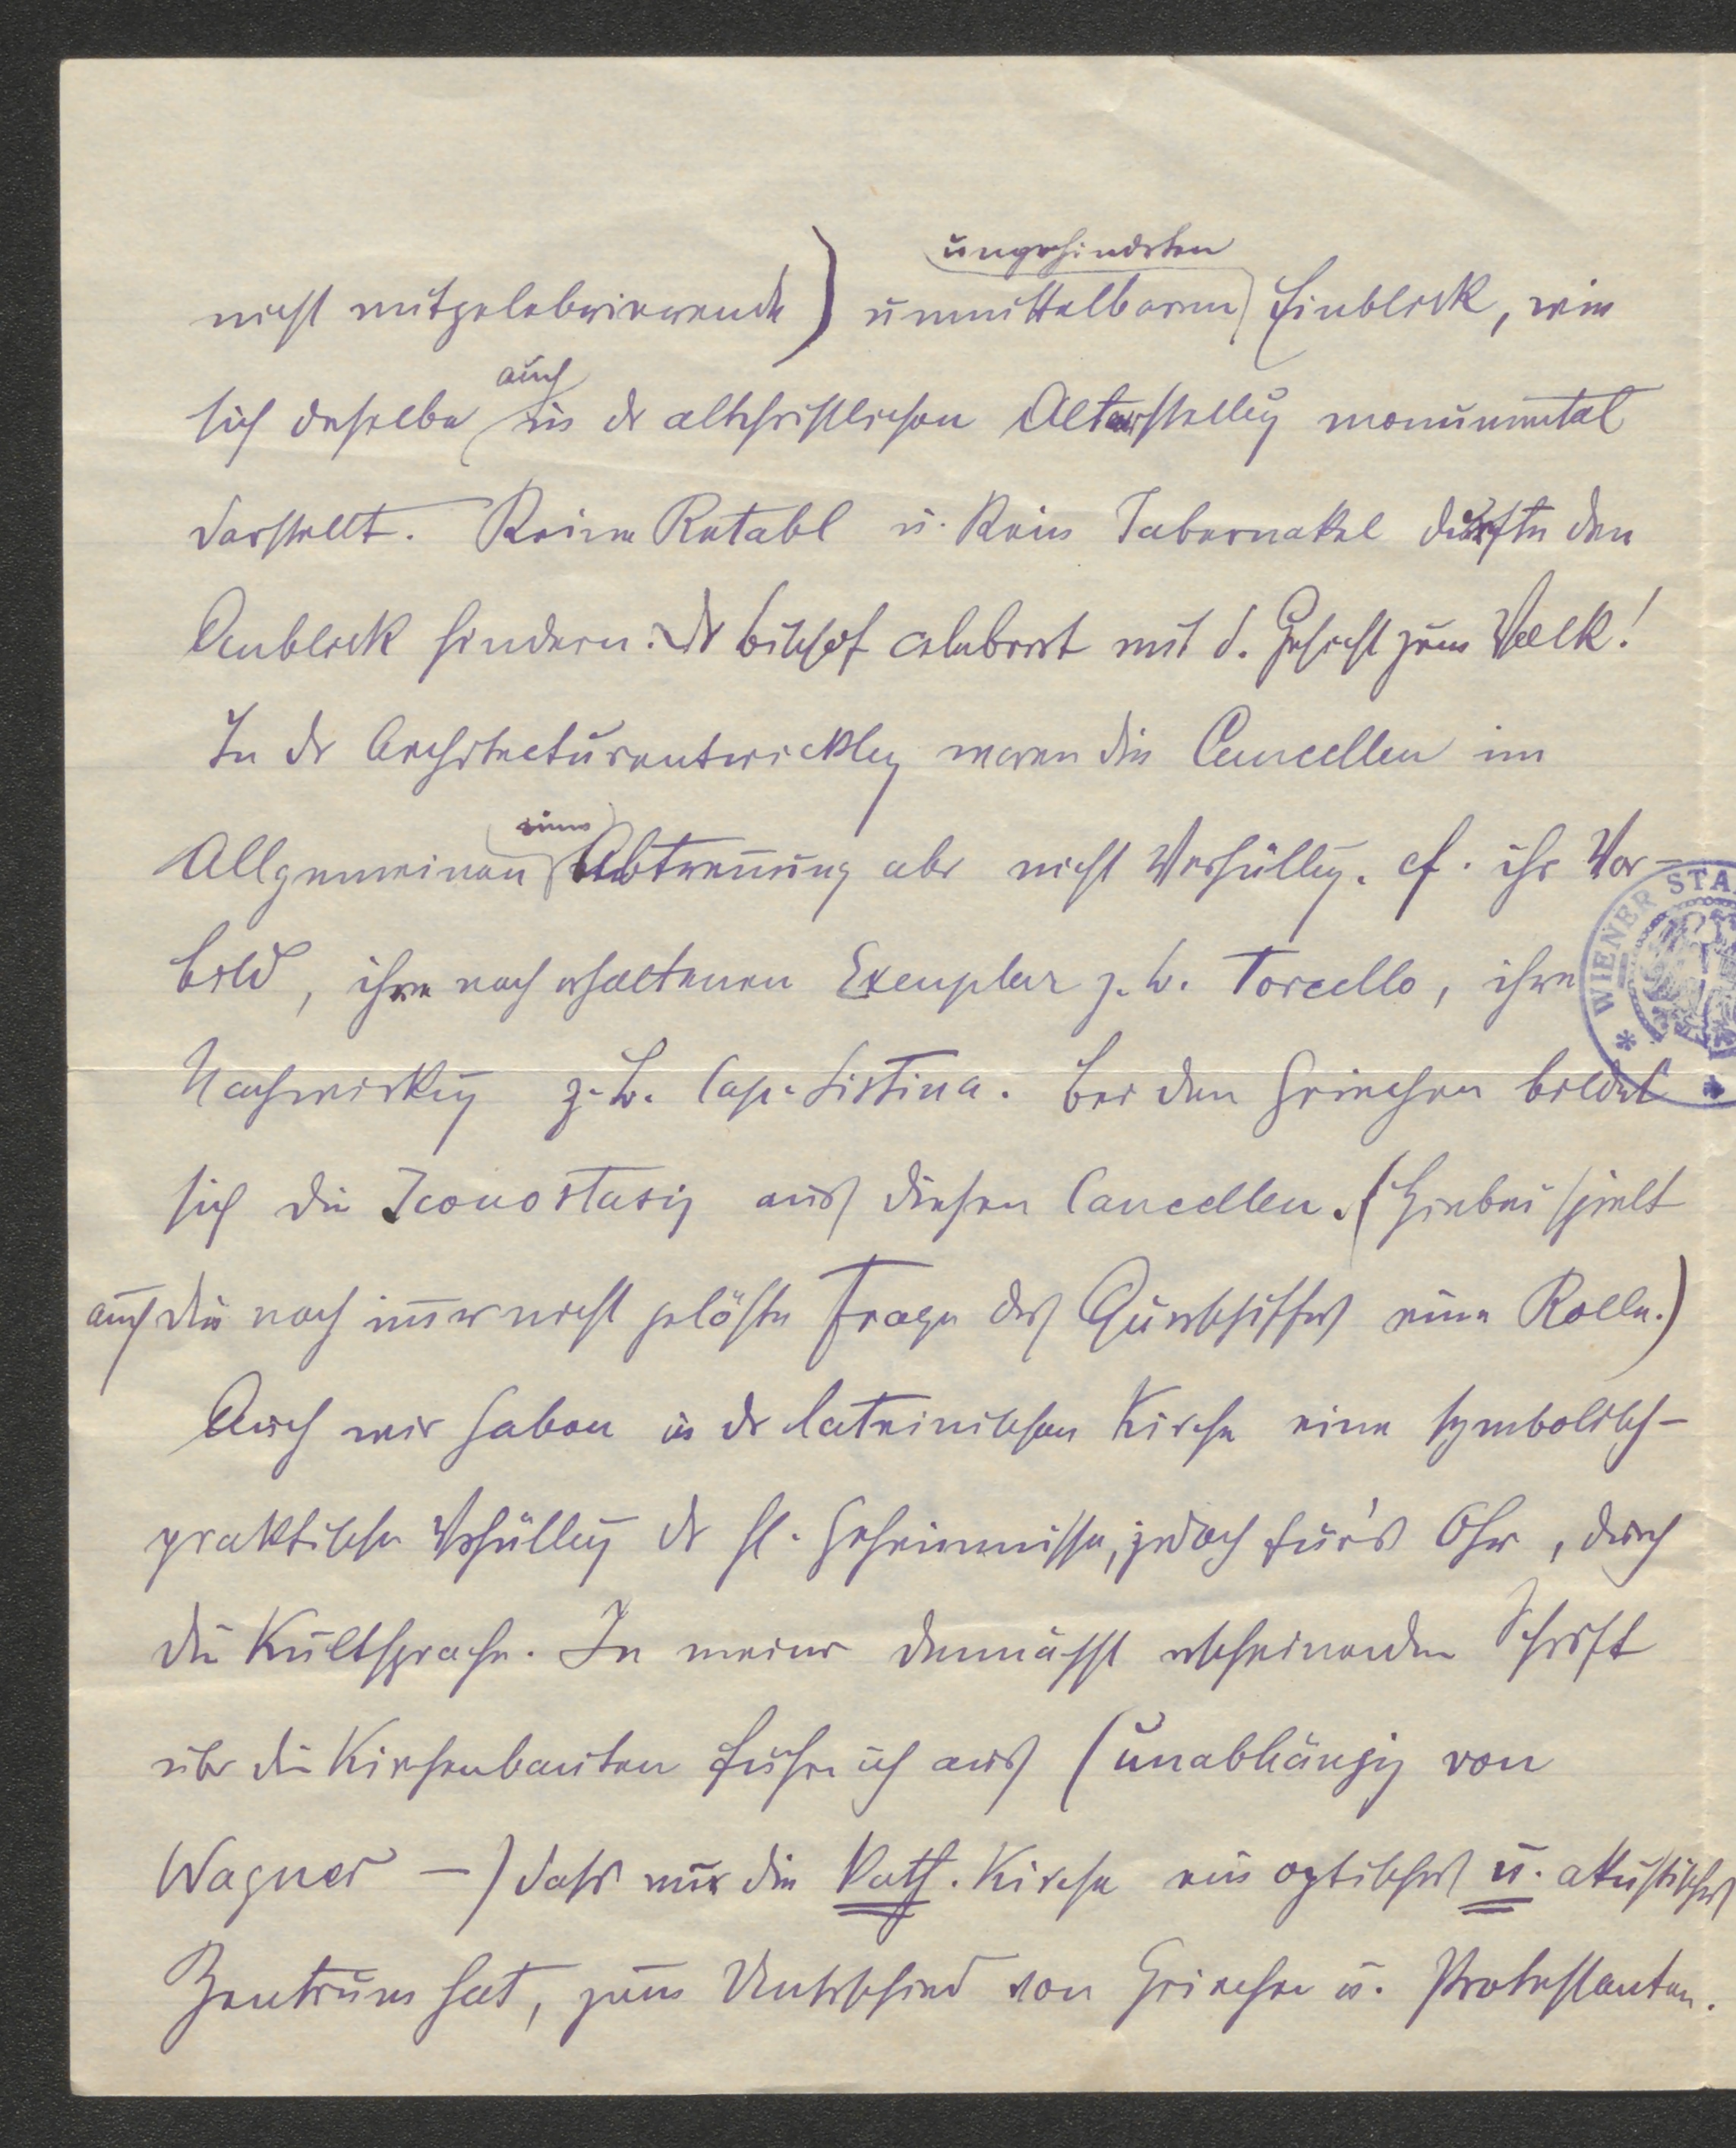 ungehinderten
nicht mitzelebrierende) unmittelbaren Einblick, wie
auch
sich derselbe in dr altchristlichen Altarstellg monumental
darstellt. Keine Retabl u. kein Tabernakel durfte den
Anblick hindern. Dr Bischof celebrirt mit d. Gesicht zum Volk!
In dr Architecturentwicklg waren die Cancellen im
eine
Allgemeinen Abtrennung abr nicht Verhüllg. cf. ihr Vor-
bild, ihre noch erhaltenen Exemplar z. B. Torcello, ihre
Nachwirkg z. B. Cap. Sistina. Bei den Griechen bildet
sich die Iconostasis aus diesen Cancellen. (Hiebei spielt
auch die noch immer nicht gelöste Frage des Querschiffes eine Rolle.)
Auch wir haben in dr lateinischen Kirche eine symbolisch-
praktische Verhüllg dr hl. Geheimnisse, jedoch für's Ohr, durch
die Kultsprache. In meiner demnächst erscheinenden Schrift
über die Kirchenbauten führe ich aus (unabhängig von
Wagner -) dass nur die kath. Kirche ein optisches u. akustisches
Zentrum hat, zum Unterschied von Griechen u. Protestanten.
WIENER STA